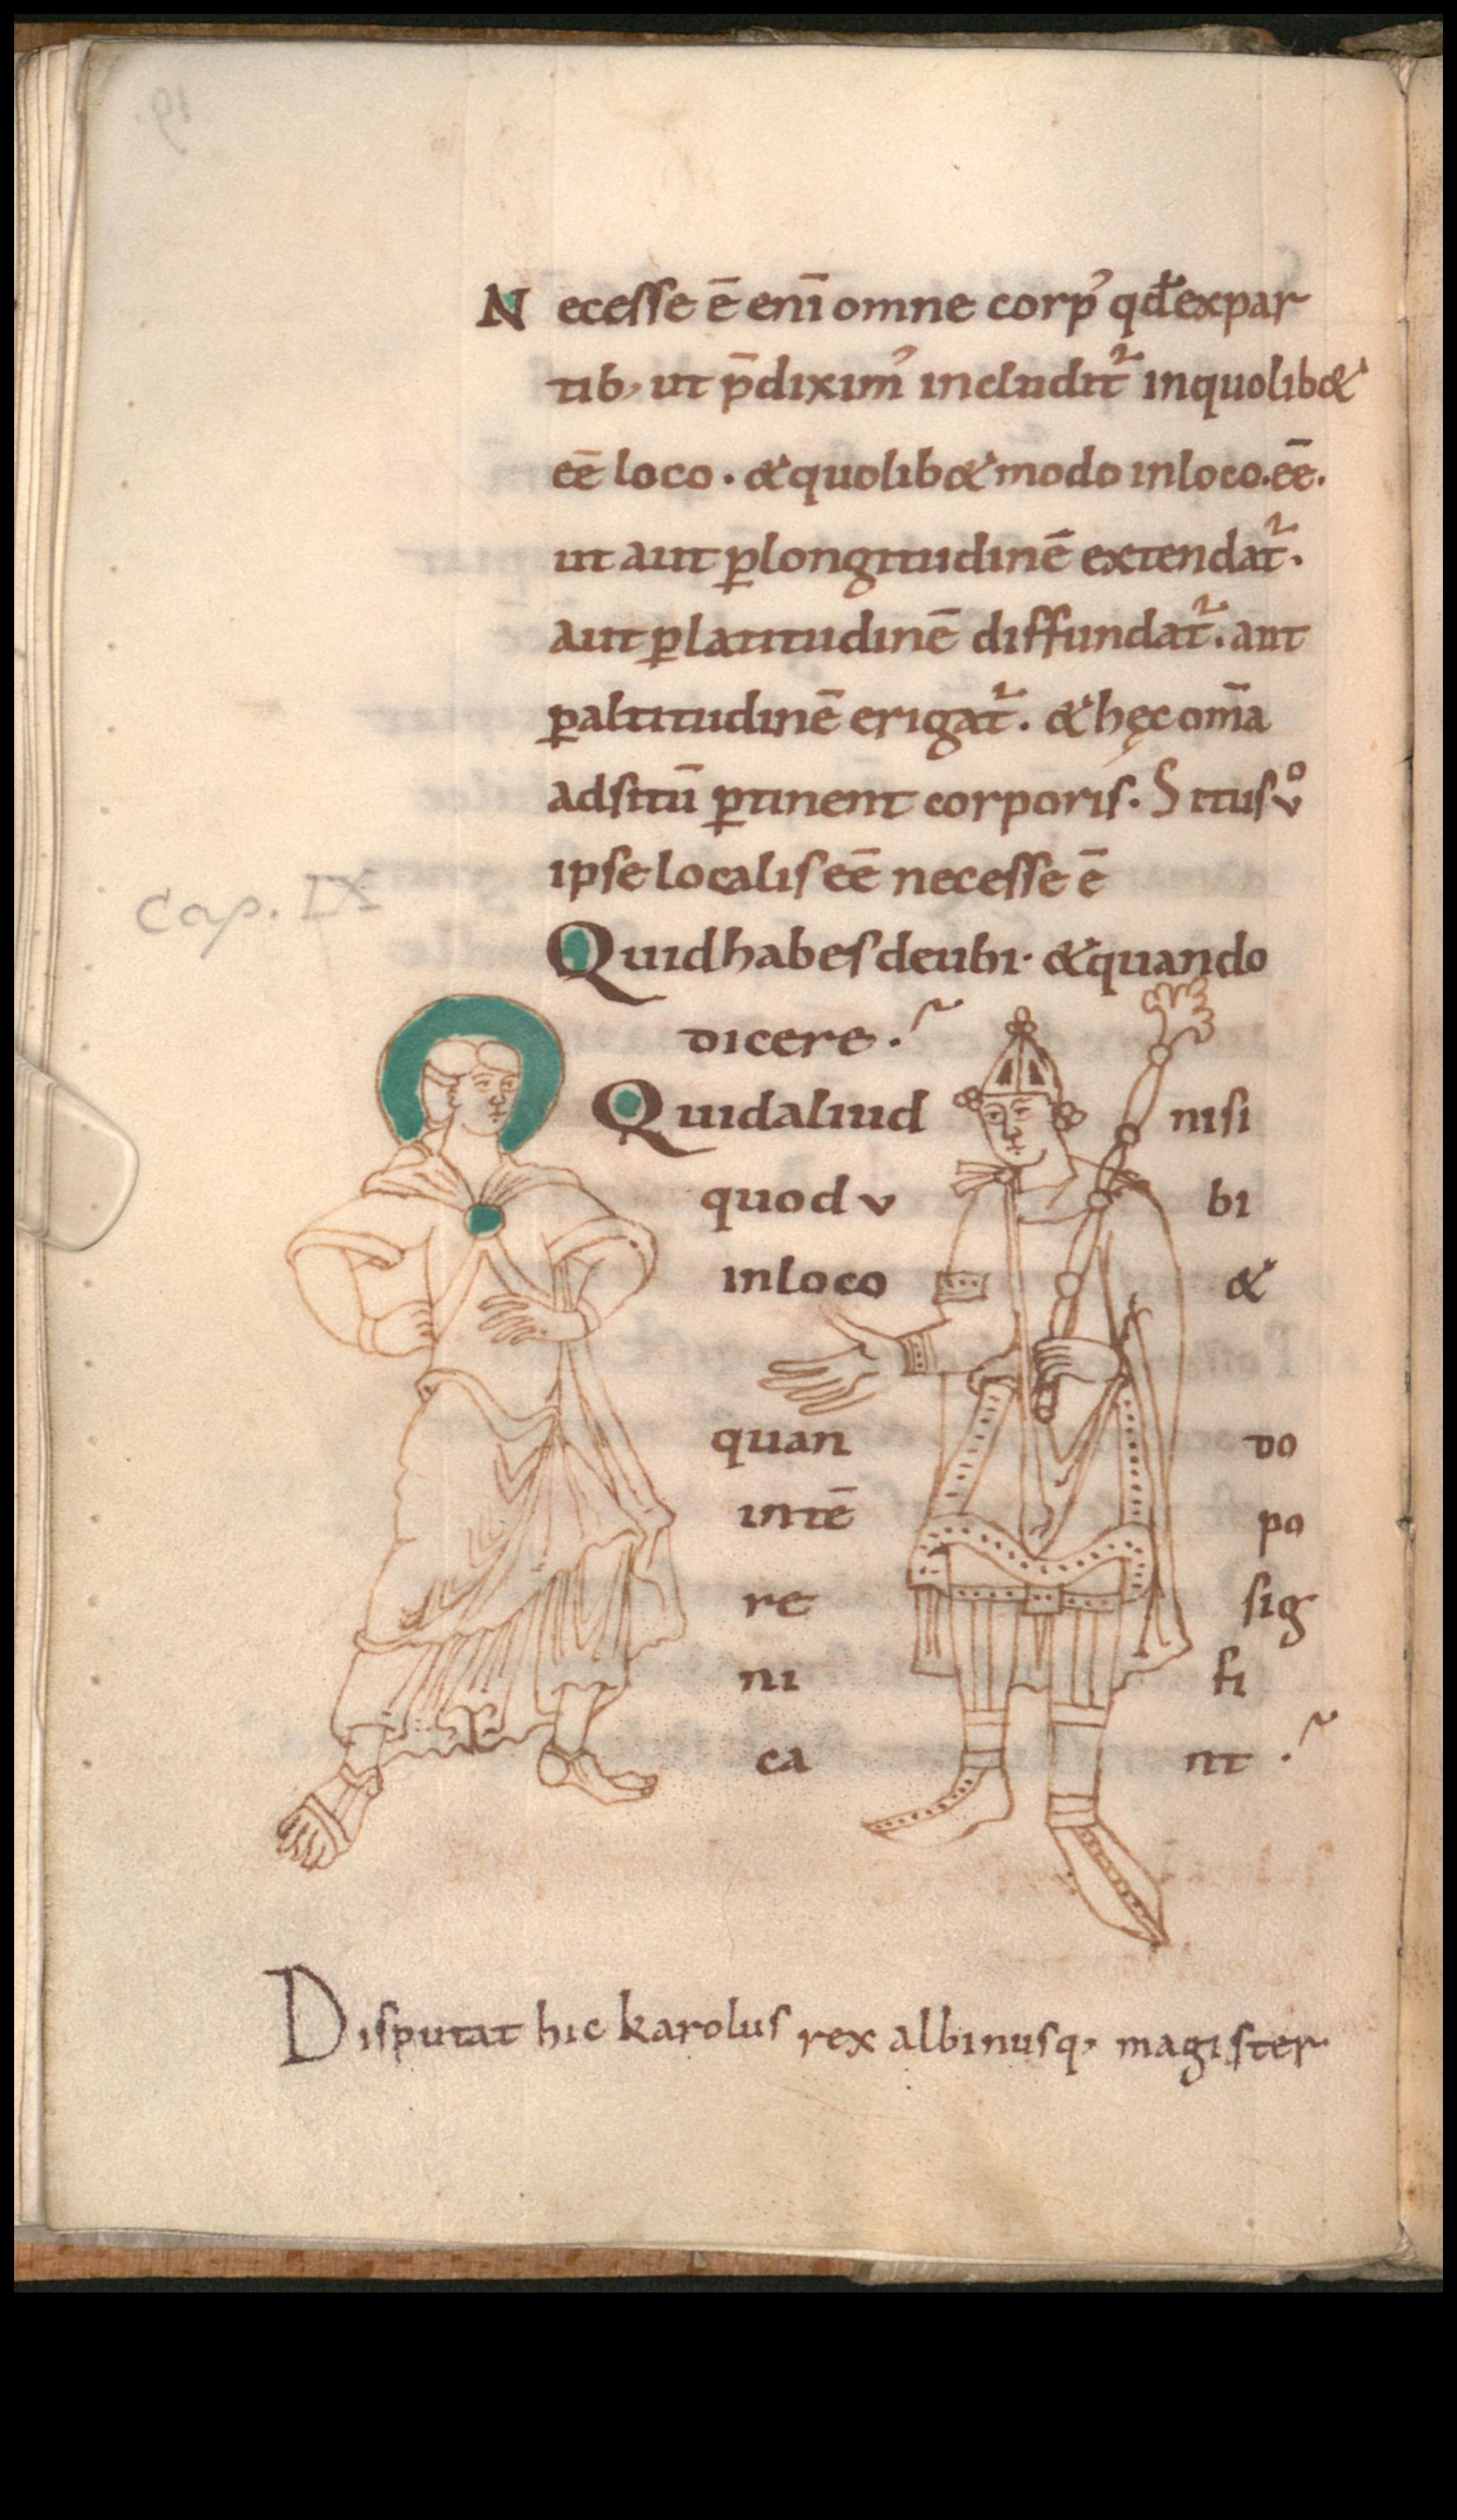 Necesse ē enī omne corp᾽ qđ expar
tib; ut p̄dixim᾽ includit᷑ inquolib&
eē loco. & quolib& modo inloco. eē.
ut aut ꝑlongitudinē extendat᷑.
aut ꝑlatitudinē diffundat᷑. aut
ꝑaltitudinē erigat᷑. & hęc om̄a
adsitū ꝑtinent corporis. Situs vͦ
ipse localis eē necesse ē
Cap. IX
Quid habes deubi. & quando
dicere.~
Quid aliud nisi
quod v bi
inloco &
quan do
intē po
re sig
ni fi
ca nt .~
Disputat hic karolus rex albinusq; magister